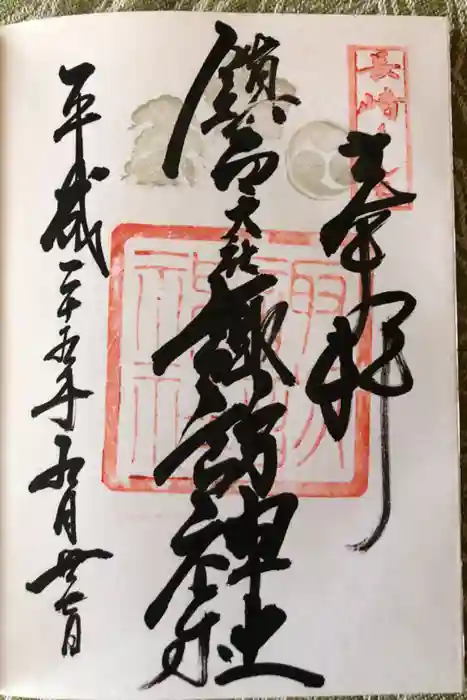 長崎
奉拝
鎮西大社諏訪神社
諏訪
神社
平成二十五年月廿七日